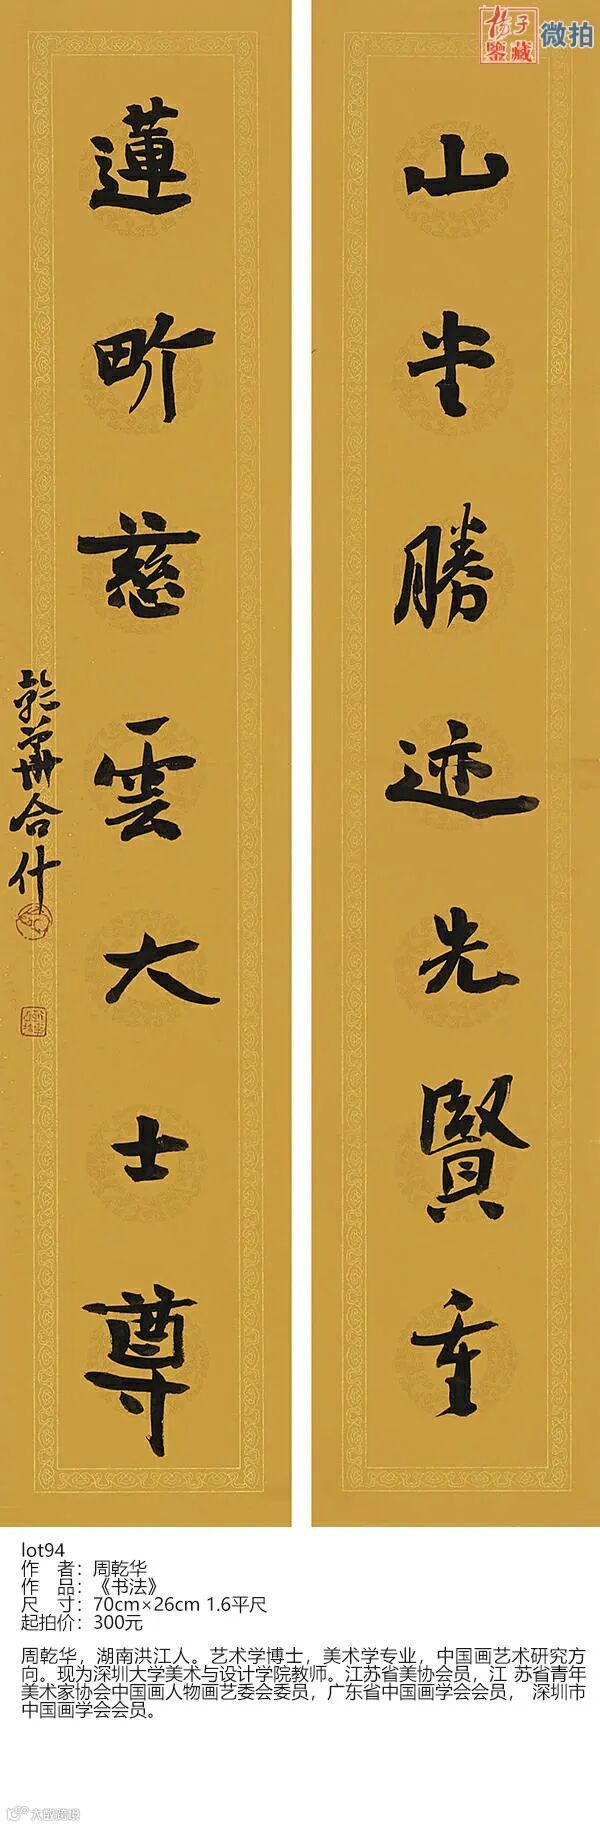 揚子
鑒藏
微拍
山堂勝迹先賢重
蓮畍慈雲大士尊
乾華合什
lot94
作 者：周乾华
作 品：《书法》
尺 寸：70cm×26cm 1.6平尺
起拍价：300元
周乾华，湖南洪江人。艺术学博士，美术学专业，中国画艺术研究方
向。现为深圳大学美术与设计学院教师。江苏省美协会员，江 苏省青年
美术家协会中国画人物画艺委会委员，广东省中国画学会会员， 深圳市
中国画学会会员。
大数跨境